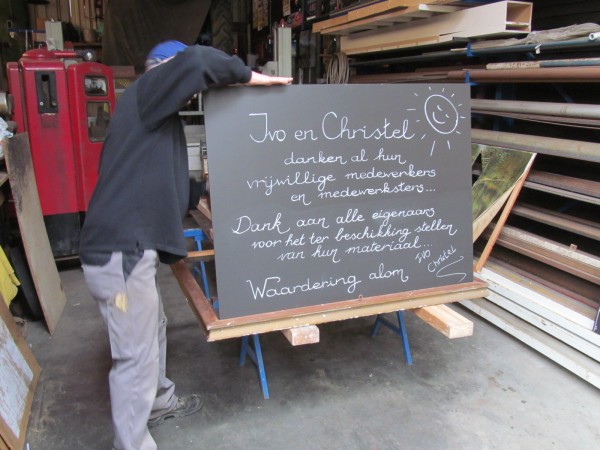 Ivo en Christel
danken al hun
vrijwillige medewerkers
en medewerksters...
Dank aan alle eigenaars
voor het ter beschikking stellen
van hun materiaal...
Waardering alom
IVO
Christel